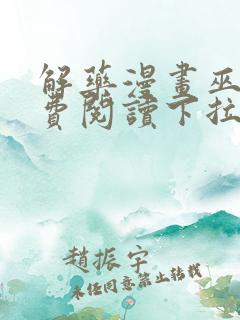 解藥漫畫巫
費閱讀下拉
趙振宇
未經同意禁止轉載